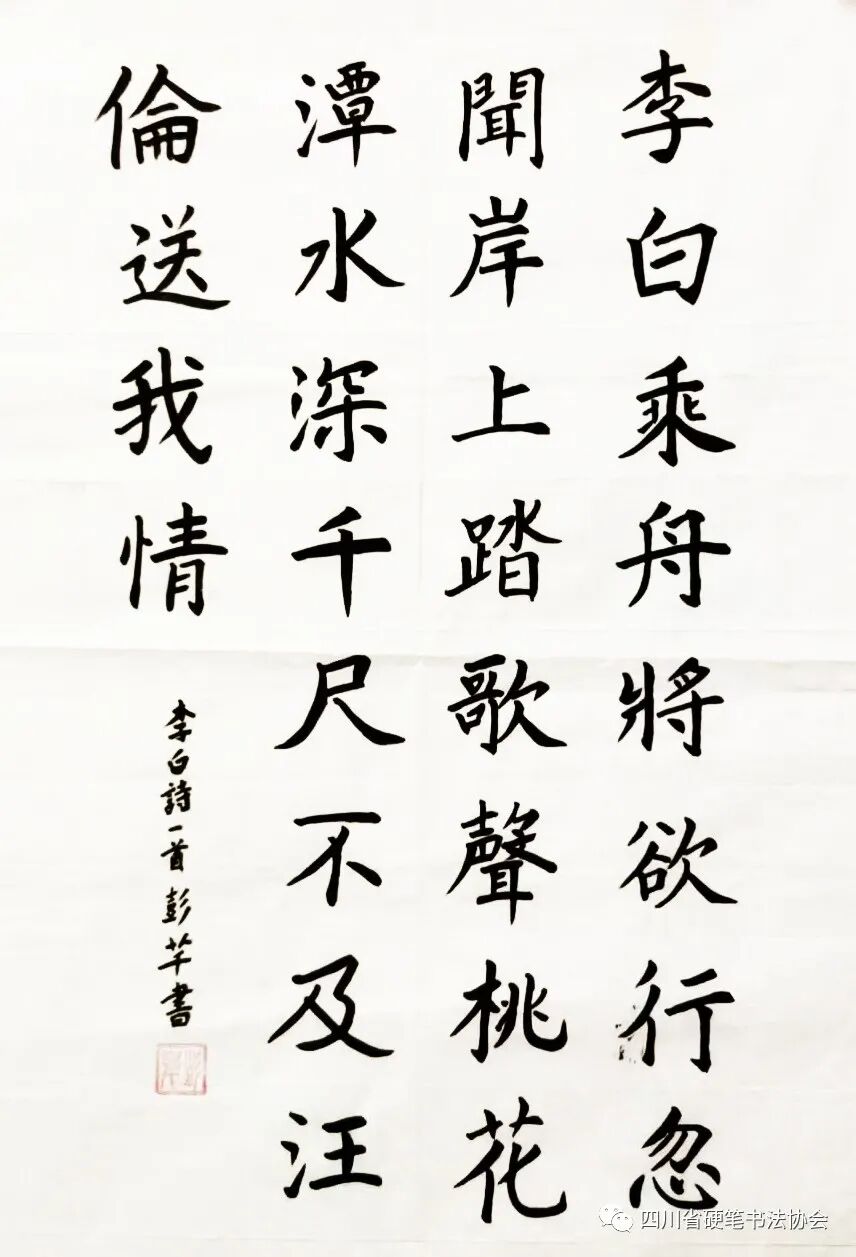 李白乘舟將欲行忽
聞岸上踏歌聲桃花
潭水深千尺不及汪
倫送我情
李白詩一首彭芊書
四川省硬笔书法协会